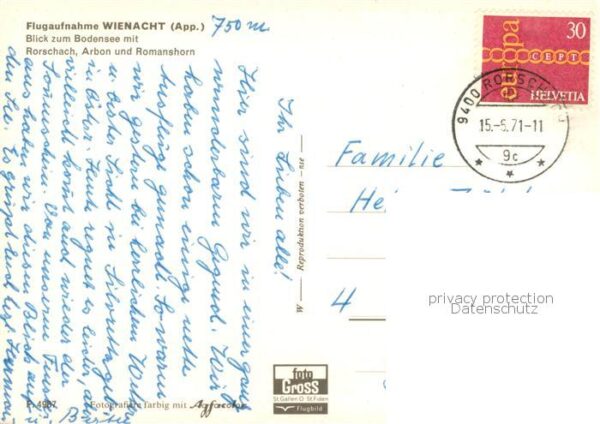 Flugaufnahme WIENACHT (App.) 750 m
Blick zum Bodensee mit
Rorschach, Arbon und Romanshorn
30
europa
CEPT
HELVETIA
9400 RORSCHACH
15.-6.71-11
9c
Ihr Lieben alle!
Hier sind wir in einer ganz
wunderbaren Gegend. Wir
haben schon einige nette
Ausflüge gemacht. So waren
wir gestern bei herrlichem
u. bester Sicht in
in Österr. Heute regnet es leider,
vielleicht kommt auch wieder der
Sonnenschein. Von unserem
aus haben wir diesen Blick auf
den See. Es grüßt Euch
u.
W — Reproduktion verboten - nse —
Familie
He
4
privacy protection
Datenschutz
foto
Gross
St. Gallen O St. Fiden
Flugbild
F. 4967 Fotografiert farbig mit Agfacolor